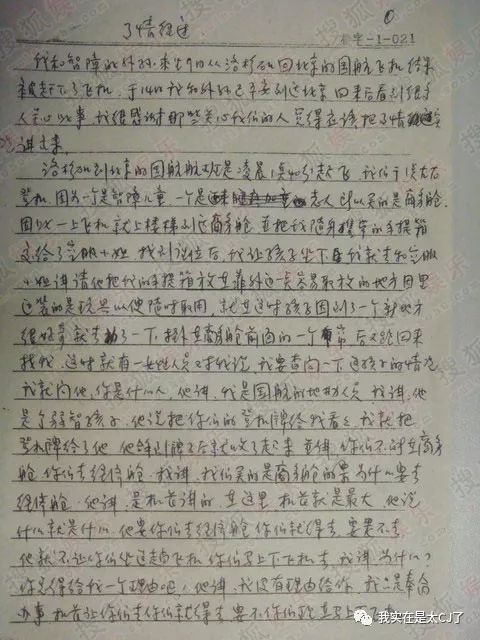 了情经过
0
-1-021
我和智障的外孙乘9日从洛杉矶回北京的国航飞机结果
被赶下了飞机，于14日我和外孙已平安到达北京回来后看到很多
人关心此事我很感谢那些关心我们的人觉得应该把了情
讲出来
洛杉矶到北京的国航航班是凌晨1点40分起飞我们于
登机．因为一个是智障儿童．一个是老人所以买的是商务舱．
因此一上飞机就上楼梯到达商务舱並把我随身携带的手提箱
交给了空服小姐．找到座位后．我让孩子坐下我就去和空服
小姐讲请他把我的手提箱放在靠外边点容易取放的地方因里
边装的是玩具以便随时取用．就在这时孩子因到了一个新地方
很好奇就去了一下．在商务舱前面的一个布帘后又跑回来
找我．这时就有一女性人员又对我说．我要查问一下这孩子的情况
我就问他，你是什么人，他讲，我是国航的地勤人员，我讲，他
是个弱智孩子．他说把你们的登机牌给我看看我就把
登机牌给了他．他拿到牌子后就收了起来並讲，你们不能坐商务
舱．你们去经济舱．我讲，我们买的是商务舱的票为什么要去
经济舱．他讲，是机长讲的．在这里机长就是最大，他说
什么就是什么．他要你们去经济舱你们就得去要是不去
他就不让你们坐这趟飞机你们马上下飞机去，我讲，为什么？
你总得给我一个理由吧，他讲，我没有理由给你，我只是奉命
办事机长让你们去你们就得去要不你们现在马上
搜狐娱乐
我实在是太CJ了